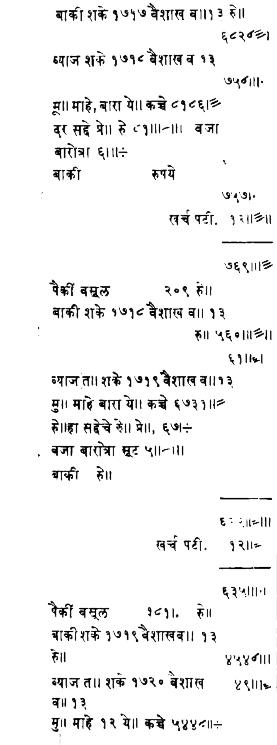 बाकी शके १७१७ वैशाख व॥१३ रु॥
६८२०८≡।
व्याज शके १७१८ वैशाख व १३
७५०८॥।·
मू॥ माहे, बारा ये॥ कच्चे ८१८६।≡
दर सद्दे प्रे॥ रु ८१॥।-॥। वजा
बारोत्रा ६॥।÷
बाकी रुपये
७५७।·
खर्च पटी. १२॥≡॥
७६९॥।≡
पैकीं वसूल २०९ रु॥
बाकी शके १७१८ वैशाख व॥ १३
रु॥ ५६०॥≡॥
व्याज त॥ शके १७१९ वैशाख व॥१३
मु॥ माहे बारा ये॥ कच्चे ६७३१॥=
रु॥हा सद्देचे रु॥ प्रे॥, ६७।÷
वजा बारोत्रा सूट ५॥-॥।
बाकी रु॥
खर्च पटी. १२॥=
६३५॥।·
पैकीं वसूल १८१।. रु॥
बाकी शके १७१९ वैशाखव॥ १३
रु॥ ४५४०८॥।
व्याज त॥ शके १७२० वैशाख
व॥ १३
मु॥ माहे १२ ये॥ कच्चे ५४४८॥÷